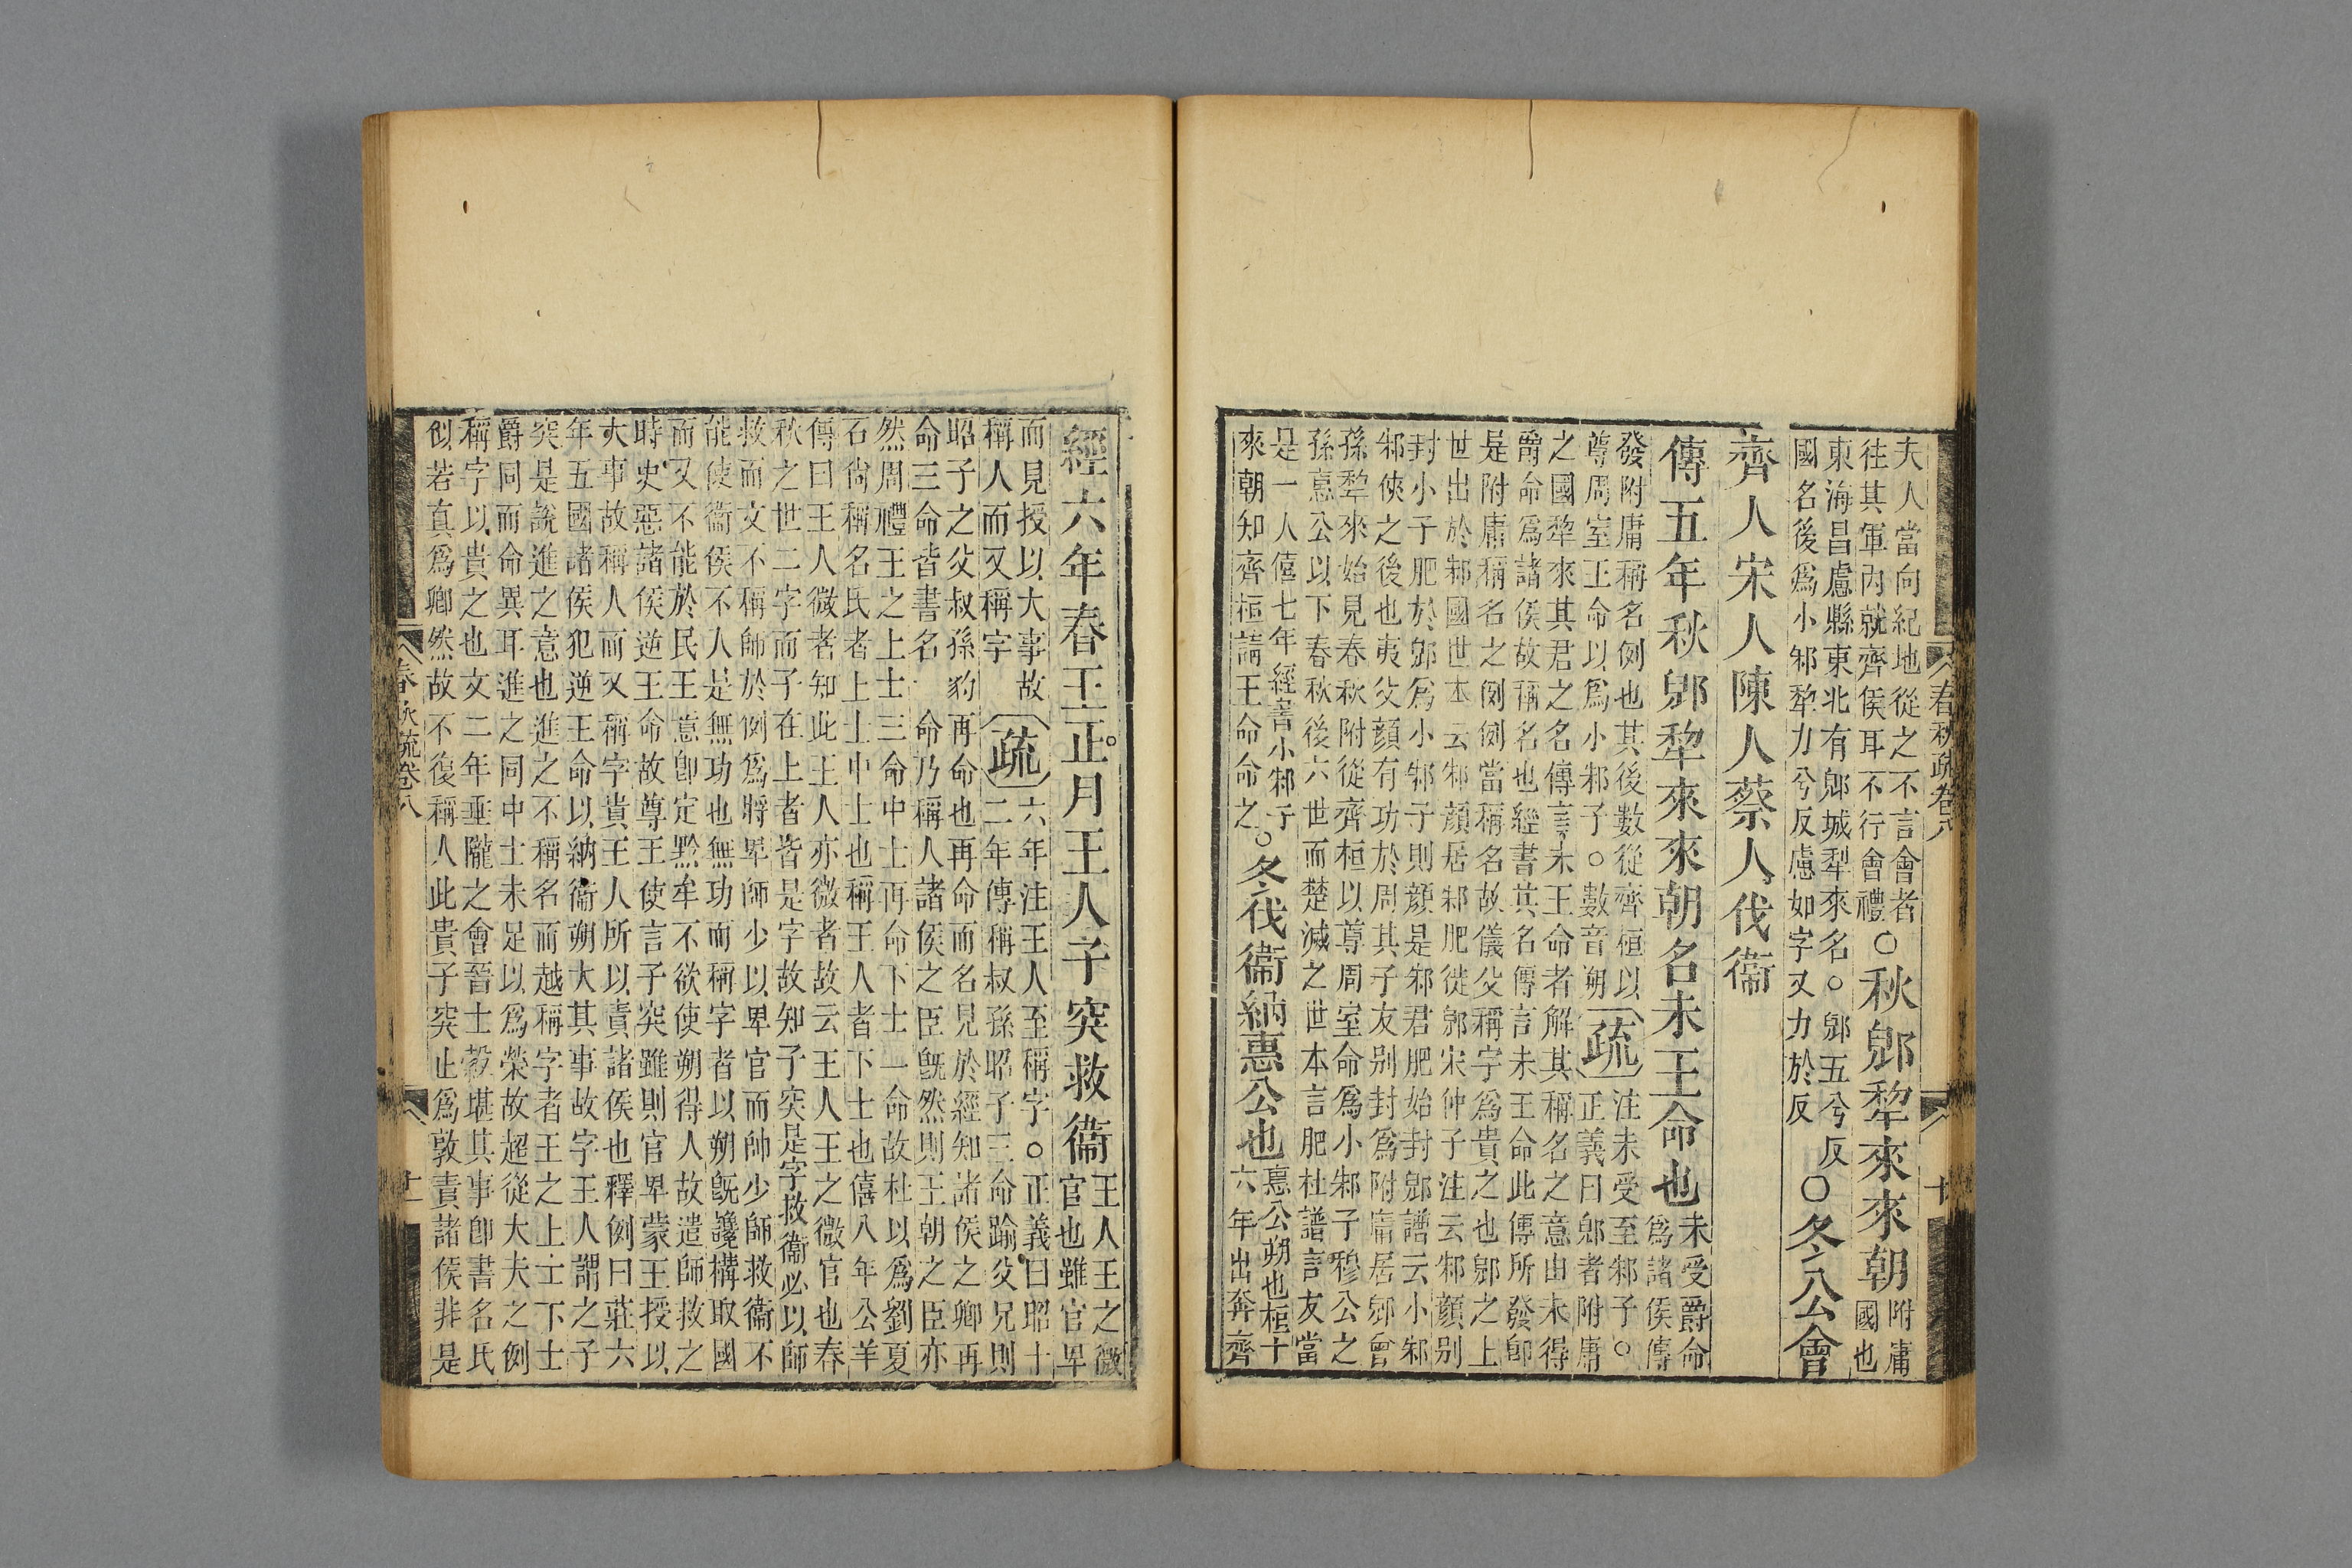 春秋疏卷八
十
夫人當向紀地從之不言會者
往其軍內就齊侯耳不行會禮
○秋郳犂來來朝
附庸
國也
東海昌慮縣東北有郳城犁來名。郳五兮反
國名後爲小邾犂力兮反慮如字又力於反
○冬公會
齊人宋人陳人蔡人伐衞
傳五年秋郳犂來來朝名未王命也
未受爵命
爲諸侯傳
發附庸稱名例也其後數從齊桓以
尊周室王命以爲小邾子。數音朔
疏
注未受至邾子。
正義曰郳者附庸
之國犂來其君之名傳言未王命者解其稱名之意由未得
爵命爲諸侯故稱名也經書其名傳言未王命此傳所發卽
是附庸稱名之例例當稱名故儀父稱字爲貴之也郳之上
世出於邾國世本云邾顔居邾肥徙郳宋仲子注云邾顔別
封小子肥於郳爲小邾子則顔是邾君肥始封郳譜云小邾
邾俠之後也夷父顔有功於周其子友別封爲附庸居郳曾
孫犂來始見春秋附從齊桓以尊周室命爲小邾子穆公之
孫惠公以下春秋後六世而楚滅之世本言肥杜譜言友當
是一人僖七年經書小邾子
來朝知齊桓請王命命之。
冬伐衞納惠公也
惠公朔也桓十
六年出奔齊
經六年春王正月王人子突救衞
王人王之微
官也雖官卑
而見授以大事故
稱人而又稱字
疏
六年注王人至稱字。正義曰昭十
二年傳稱叔孫昭子三命踰父兄則
昭子之父叔孫豹再命也再命而名見於經知諸侯之卿再
命三命皆書名一命乃稱人諸侯之臣旣然則王朝之臣亦
然周禮王之上士三命中士再命下士一命故杜以爲劉夏
石尙稱名氏者上士中士也稱王人者下士也僖八年公羊
傳曰王人微者知此王人亦微者故云王人王之微官也春
秋之世二字而子在上者皆是字故知子突是字救衞必以師
救而文不稱師於例爲將卑師少以卑官而帥少師救衞不
能使衞侯不入是無功也無功而稱字者以朔旣讒構取國
而又不能於民王意卽定黔牟不欲使朔得人故遣師救之
時史惡諸侯逆王命故尊王使言子突雖則官卑蒙王授以
大事故稱人而又稱字貴王人所以責諸侯也釋例曰莊六
年五國諸侯犯逆王命以納衞朔大其事故字王人謂之子
突是說進之意也進之不稱名而越稱字者王之上士下士
爵同而命異耳進之同中士未足以爲榮故超從大夫之例
稱字以貴之也文二年垂隴之會晉士縠堪其事卽書名氏
似若真爲卿然故不復稱人此貴子突止爲敦責諸侯非是
春秋疏卷八
十一